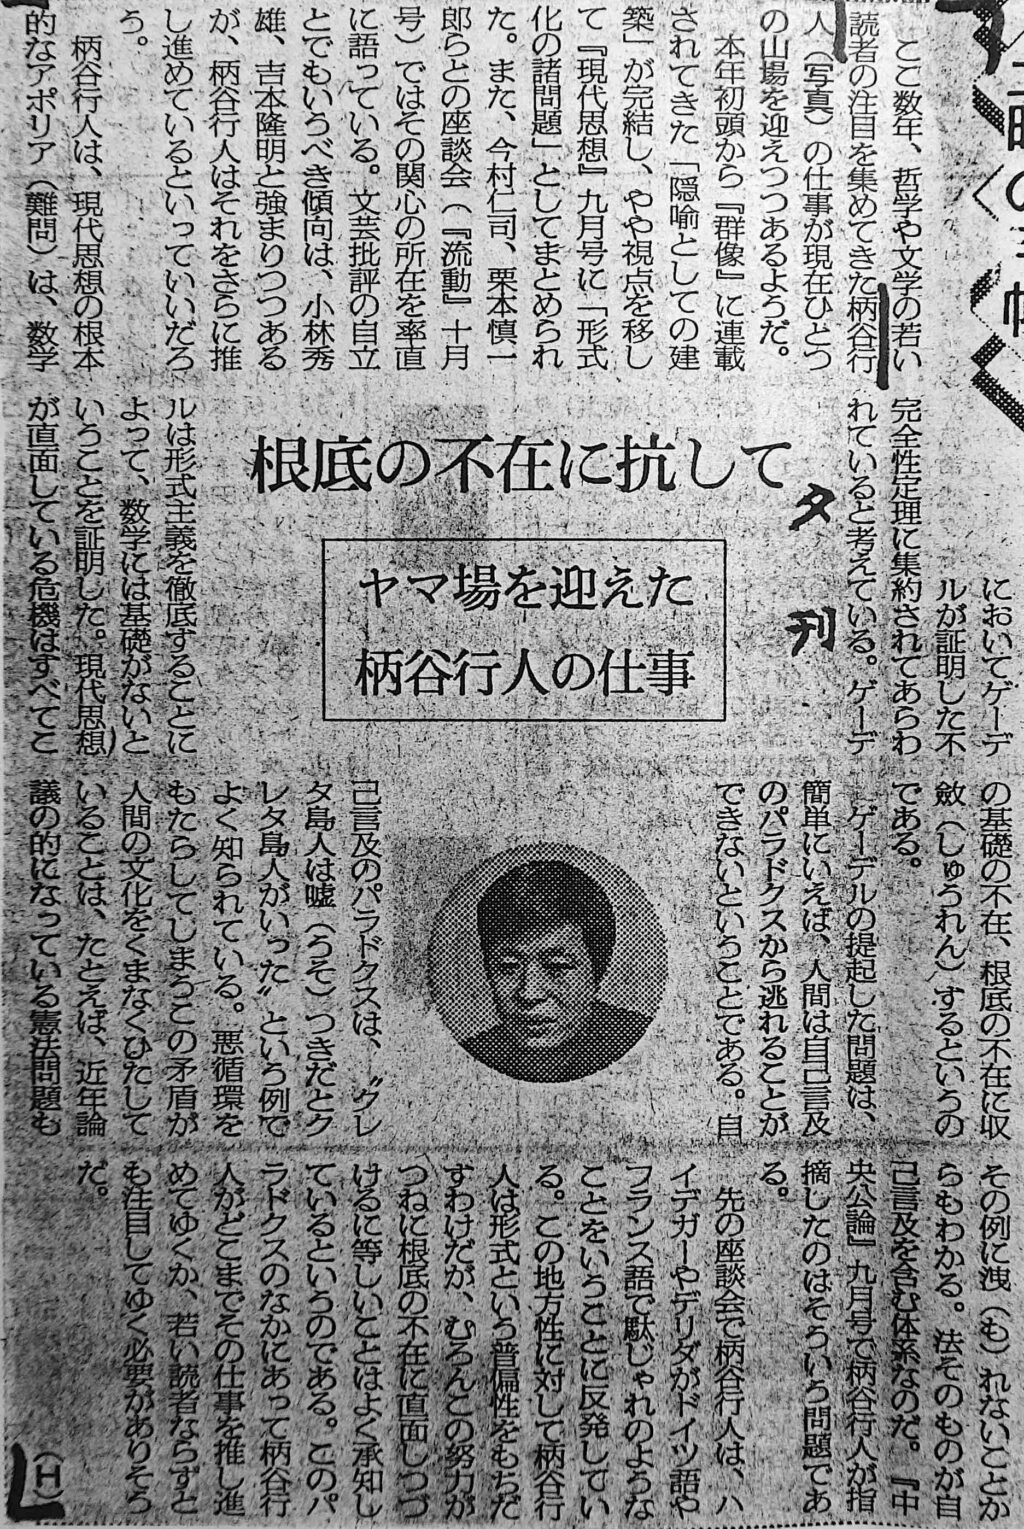 ここ数年、哲学や文学の若い
読者の注目を集めてきた柄谷行
人（写真）の仕事が現在ひとつ
の山場を迎えつつあるようだ。
本年初頭から『群像』に連載
されてきた「隠喩としての建
築」が完結し、やや視点を移し
て『現代思想』九月号に「形式
化の諸問題」としてまとめられ
た。また、今村仁司、栗本慎一
郎らとの座談会（『流動』十月
号）ではその関心の所在を率直
に語っている。文芸批評の自立
とでもいうべき傾向は、小林秀
雄、吉本隆明と強まりつつある
が、柄谷行人はそれをさらに推
し進めているといっていいだろ
う。
柄谷行人は、現代思想の根本
的なアポリア（難問）は、数学
においてゲーデ
ルが証明した不
完全性定理に集約されてあらわ
れていると考えている。ゲーデ
夕刊
根底の不在に抗して
ヤマ場を迎えた
柄谷行人の仕事
ルは形式主義を徹底することに
よって、数学には基礎がないと
いうことを証明した。現代思想
が直面している危機はすべてこ
の基礎の不在、根底の不在に収
斂（しゅうれん）するというの
である。
ゲーデルの提起した問題は、
簡単にいえば、人間は自己言及
のパラドクスから逃れることが
できないということである。自
己言及のパラドクスは、〝クレ
タ島人は嘘（うそ）つきだとク
レタ島人がいった〟という例で
よく知られている。悪循環を
もたらしてしまうこの矛盾が
人間の文化をくまなくひたして
いることは、たとえば、近年論
議の的になっている憲法問題も
その例に洩（も）れないことか
らもわかる。法そのものが自
己言及を含む体系なのだ。『中
央公論』九月号で柄谷行人が指
摘したのはそういう問題であ
る。
先の座談会で柄谷行人は、ハ
イデガーやデリダがドイツ語や
フランス語で駄じゃれのような
ことをいうことに反発してい
る。この地方性に対して柄谷行
人は形式という普偏性をもちだ
すわけだが、むろんこの努力が
つねに根底の不在に直面しつづ
けるに等しいことはよく承知し
ているというのである。このパ
ラドクスのなかにあって柄谷行
人がどこまでその仕事を推し進
めてゆくか、若い読者ならずと
も注目してゆく必要がありそう
だ。
（H）